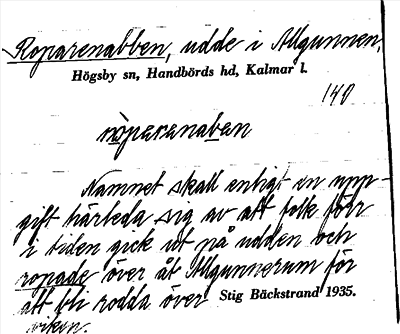 Roparenabben, udde i Allgunnen,
Högsby sn, Handbörds hd, Kalmar l.
140
röparenaben
Namnet skall enligt en upp-
gift härleda sig av att folk förr
i tiden gick ut på udden och
ropade över åt Allgunnerum för
att bli rodda över
viken.
Stig Bäckstrand 1935.